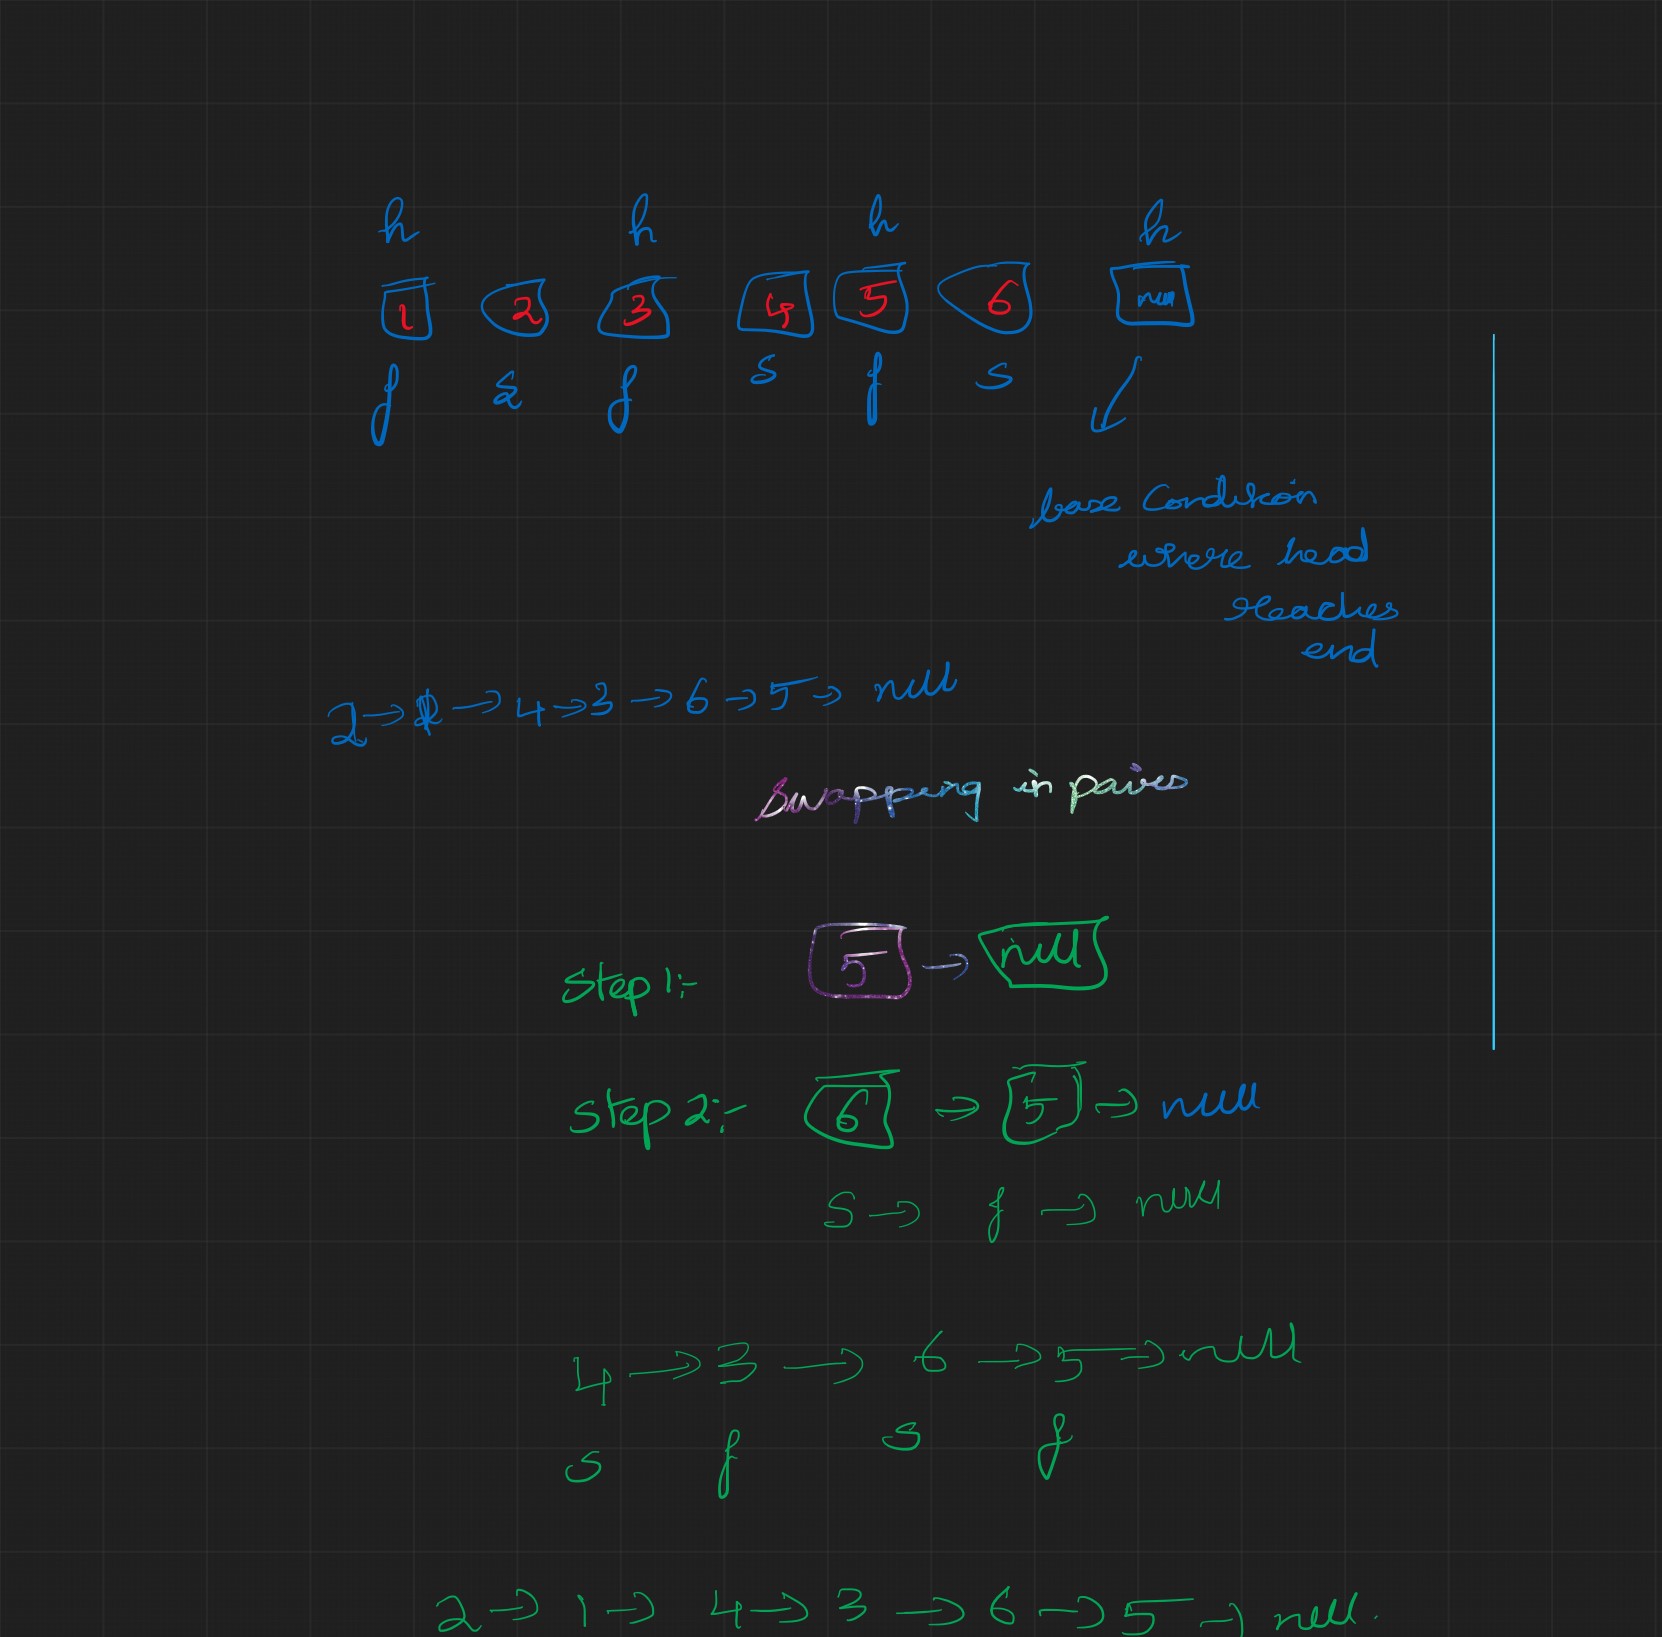 h h h h
1 2 3 4 5 6 null
f s f s f s
base Condition
where head
reaches
end
2 → 1 → 4 → 3 → 6 → 5 → null
Swapping in paires
Step 1:- 5 → null
Step 2:- 6 → 5 → null
S → f → null
4 → 3 → 6 → 5 → null
s f s f
2 → 1 → 4 → 3 → 6 → 5 → null.